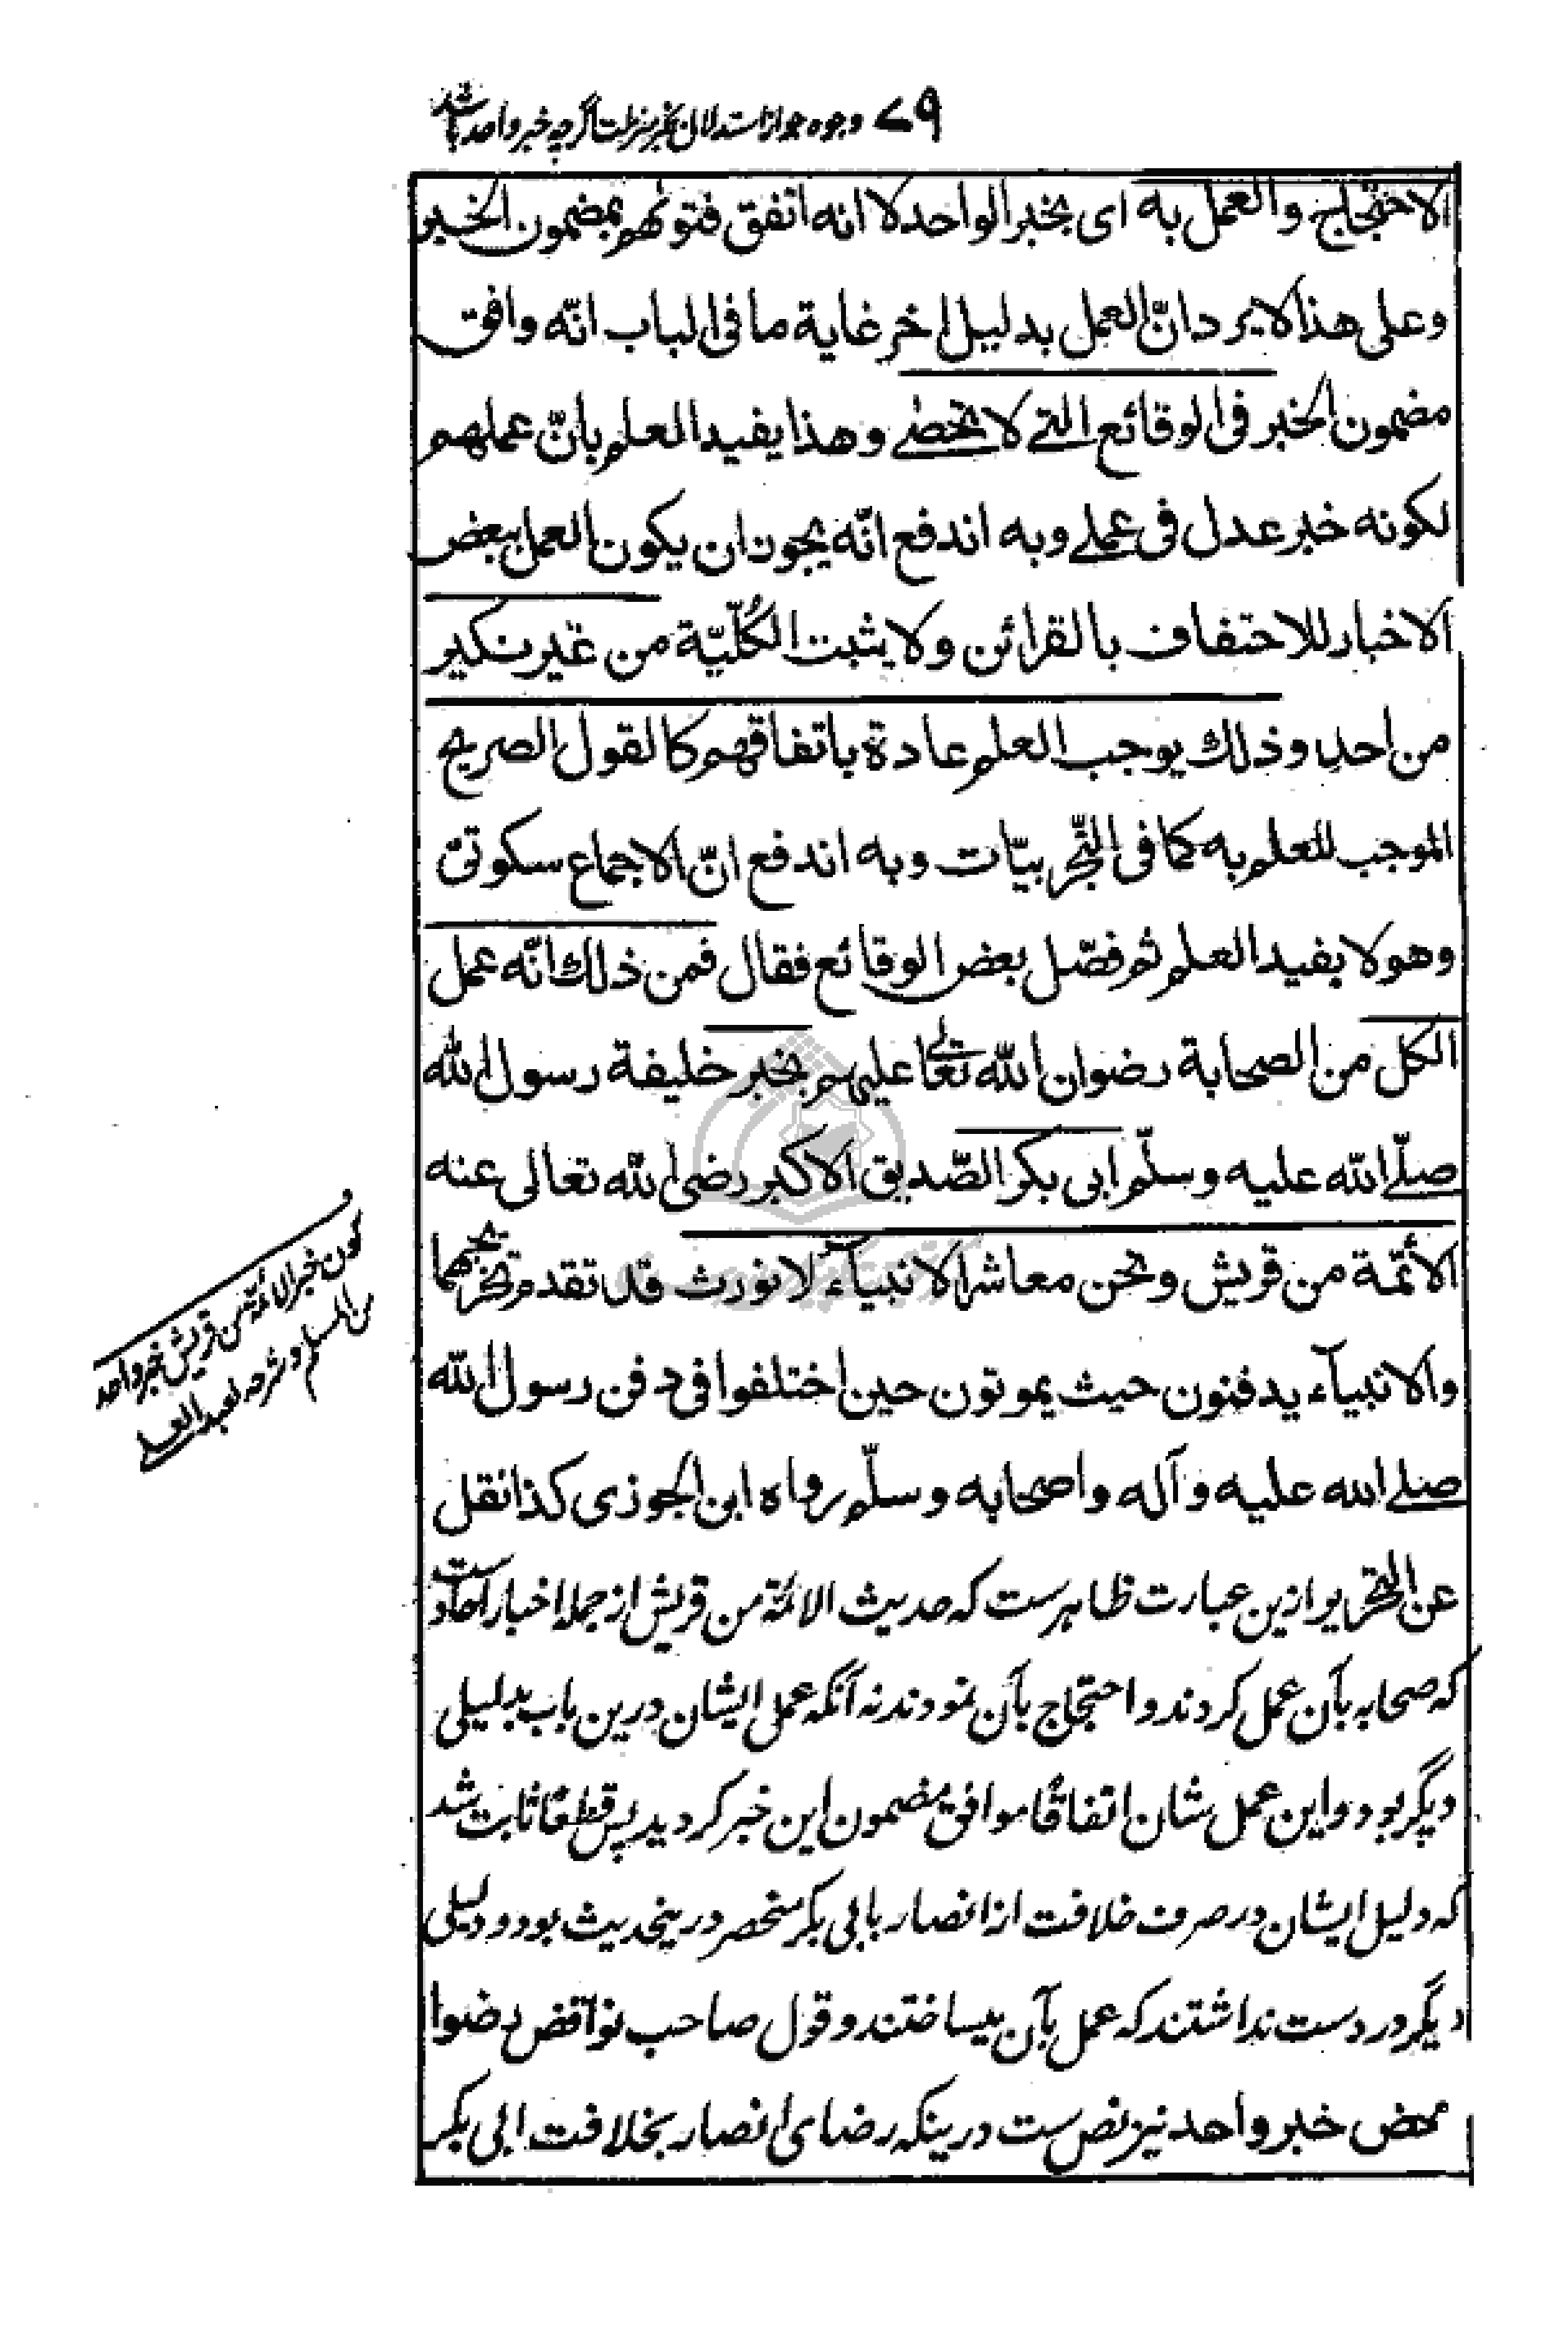 ٧٩ وجوه جواز استدلال بخبر منزلت اگرچه خبر واحد باشد
الاحتجاج والعمل به اى بخبر الواحد لا انه اتفق فتوٰهم بمضمون الخبر
وعلى هذا لا يرد انّ العمل بدليل اخر غاية ما فى الباب انّه وافق
مضمون الخبر فى الوقائع التے لا تحصٰے وهذا يفيد العلم بانّ عملهم
لكونه خبر عدل فى عملے وبه اندفع انّه يجوز ان يكون العمل ببعض
الاخبار للاحتفاف بالقرائن ولا يثبت الكُلّيّة من غير نكير
من احدٍ وذلك يوجب العلم عادة باتفاقهم كالقول الصريح
الموجب للعلم به كما فى التّجربيّات وبه اندفع انّ الاجماع سكوتىّ
وهو لا يفيد العلم ثم فصّل بعض الوقائع فقال فمن ذلك انّه عمل
الكل من الصحابة رضوان اللّه تعالے عليهم بخبر خليفة رسول اللّه
صلّے اللّه عليه وسلّم ابى بكر الصّديق الاكبر رضى اللّه تعالى عنه
الأئمّة من قريش ونحن معاشر الانبيآء لا نورث قد تقدم تخريجهما
والانبيآء يدفنون حيث يموتون حين اختلفوا فى دفن رسول اللّه
صلے الله عليه وآله واصحابه وسلّم رواه ابن الجوزى كذا نقل
عن التحرير ازين عبارت ظاهرست كه حديث الائمّة من قريش از جمله اخبار آحادست
كه صحابه بآن عمل كردند و احتجاج بآن نمودند نه آنكه عمل ايشان درين باب بدليلى
ديگر بود و اين عمل شان اتفاقًا موافق مضمون اين خبر گرديد پس قطعًا ثابت شد
كه دليل ايشان در صرف خلافت از انصار بابى بكر منحصر درينحديث بود و دليلى
ديگر در دست نداشتند كه عمل بآن ميساختند و قول صاحب نواقض رضوا
بمحض خبر واحد نيز نص ست درينكه رضاى انصار بخلافت ابى بكر
كون خبر الائمّة من قريش خبر واحد
من المسلم و شرحه لعبد العلے